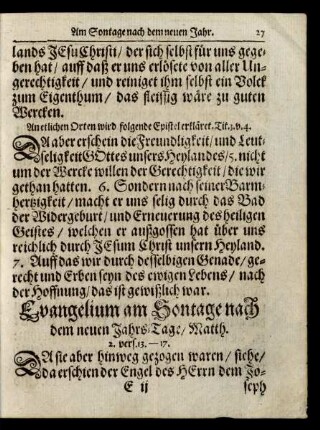 Am Sontage nach dem neuen Jahr. 27
lands JEsu Christi/ der sich selbst für uns gege-
ben hat/ auff daß er uns erlösete von aller Un-
gerechtigkeit/ und reiniget ihm selbst ein Volck
zum Eigenthum/ das fleissig wäre zu guten
Wercken.
An etlichen Orten wird folgende Epistel erkläret. Tit. 3. v. 4.
DA aber erschein die Freundligkeit/ und Leut-
seligkeit GOttes unsers Heylandes/ 5. nicht
um der Wercke willen der Gerechtigkeit/ die wir
gethan hatten. 6. Sondern nach seiner Barm-
hertzigkeit/ macht er uns selig durch das Bad
der Widergeburt/ und Erneuerung des heiligen
Geistes/ welchen er außgossen hat über uns
reichlich durch JEsum Christ unsern Heyland.
7. Auff das wir durch desselbigen Genade/ ge-
recht und Erben seyn des ewigen Lebens/ nach
der Hoffnung/ das ist gewißlich war.
Evangelium am Sontage nach
dem neuen Jahrs-Tage/ Matth.
2. vers. 13. — 17.
DA sie aber hinweg gezogen waren/ siehe/
da erschien der Engel des HErrn dem Jo-
E ij seph